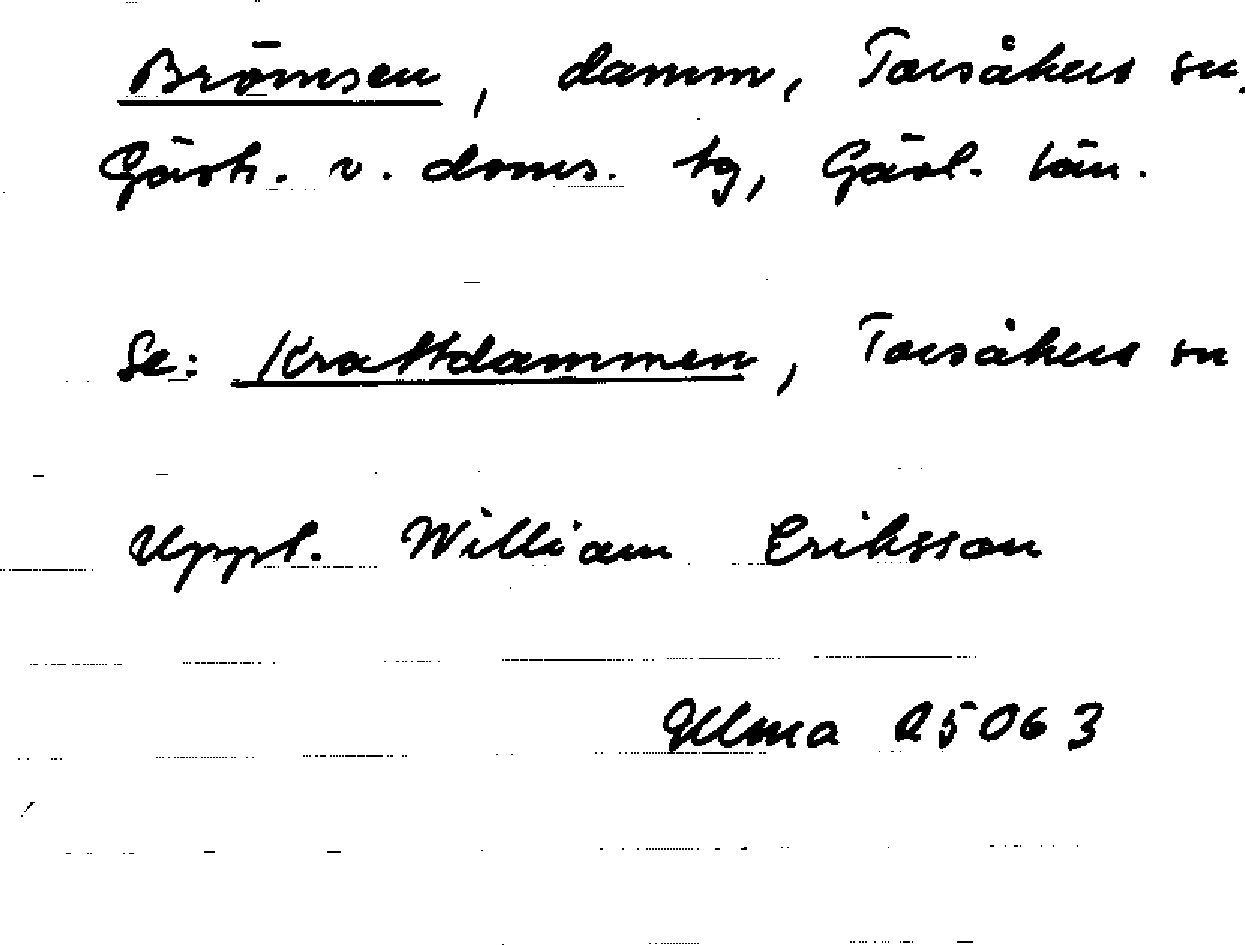 Brömsen, damm, Torsåkers sn.
Gästr. v. doms. tg, Gävl. län.
Se: Krattdammen, Torsåkers sn
Uppl. William Eriksson
Ulma 25063